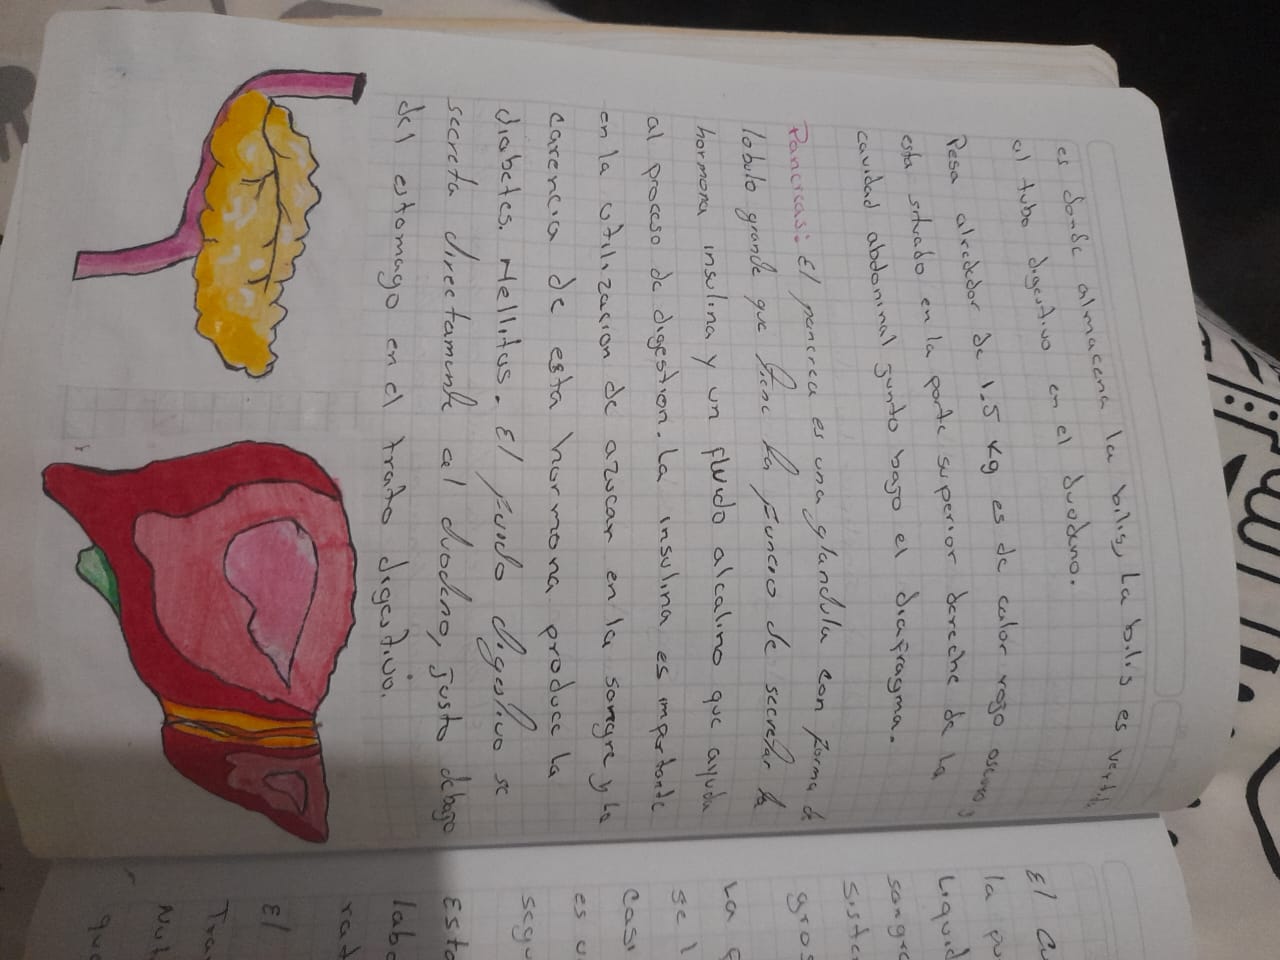 es donde almacena la bilis, La bilis es vertida
al tubo digestivo en el duodeno.
Pesa alrededor de 1.5 kg es de calor rojo oscuro y
esta situado en la parte superior dereche de la
cavidad abdominal junto bajo el diafragma.
Pancreas: El pancrea es una glandula con forma de
lobulo grande que tiene la funcio de secretar la
hormona insulina y un fluido alcalino que ayuda
al proceso de digestion. La insulina es importante
en la utilizacion de azucar en la sangre y la
carencia de esta hormona produce la
diabetes. Mellitus. El fluido digestivo se
secreta directamente al duodeno, justo debajo
del estomago en el trato digestivo.
El
la
Liquid
sangre
Siste
gros
La
se l
Casi
es u
segu
Esta
labo
rat
El
Tra
Nut
que